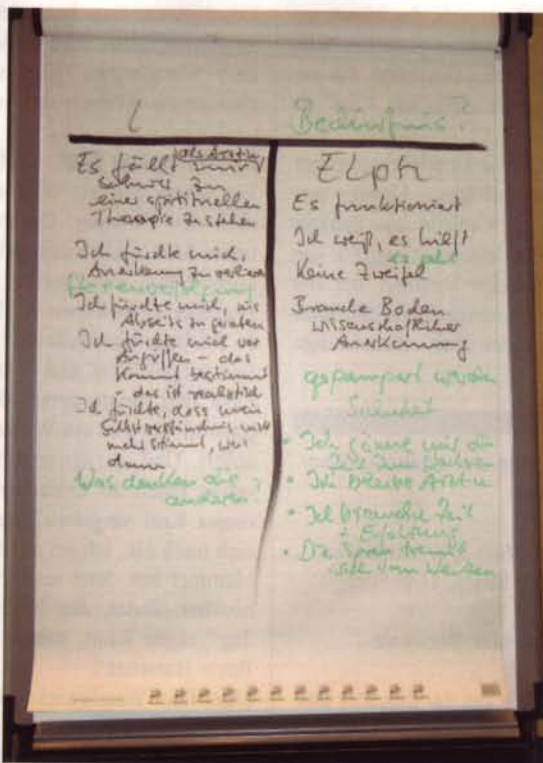 Bedürfnis?
als Ärztin
Es fällt mir
schwer zu
einer spirituellen
Therapie zu stehen
Ich fürchte mich,
Anerkennung zu verlieren
Hexenverfolgung
Ich fürchte mich, ins
Abseits zu geraten
Ich fürchte mich vor
Angriffen – das
kommt bestimmt
– das ist realistisch
Ich fürchte, dass mein
Selbstverständnis nicht
mehr stimmt, was
dann
Was denken die
anderen?
ELph
Es funktioniert
Ich weiß, es hilft
es geht
Keine Zweifel
Brauche Boden
wissenschaftlicher
Anerkennung
gepampert werden
Sicherheit
• Ich gönne mir die
Zeit zum Wachsen
• Ich bleibe Ärztin
• Ich brauche Zeit
+ Erfahrung
• Die Spreu trennt
sich vom Weizen